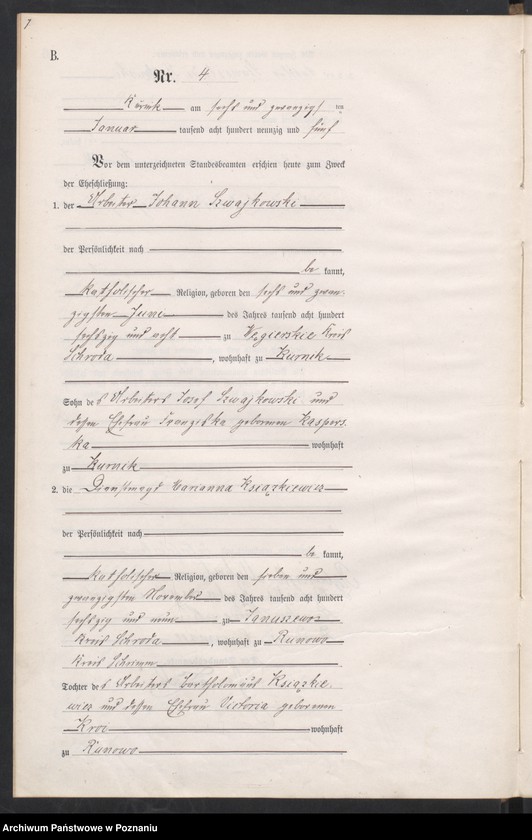 7
B.
Nr. 4
Kurnik am sechs und zwanzigsten
Januar tausend acht hundert neunzig und fünf
Vor dem unterzeichneten Standesbeamten erschien heute zum Zweck
der Eheschließung:
1. der Arbeiter Johann Szwajkowski
der Persönlichkeit nach
be kannt,
katholischer Religion, geboren den sechs und zwan-
zigsten Juni des Jahres tausend acht hundert
sechszig und acht zu Wegierskie Kreis
Schroda, wohnhaft zu Kurnik
Sohn des Arbeiters Josef Szwajkowski und
dessen Ehefrau Franziska geborenen Kaspers.
ka wohnhaft
zu Kurnik
2. die Dienstmagd Marianna Książkiewicz
der Persönlichkeit nach
be kannt,
katholischer Religion, geboren den sieben und
zwanzigsten November des Jahres tausend acht hundert
sechszig und neun zu Januszewo
Kreis Schroda, wohnhaft zu Runowo
Kreis Schrimm
Tochter des Arbeiters Bartholomäus Książkie
wicz und dessen Ehefrau Victoria geborenen
Kroi wohnhaft
zu Runowo
Archiwum Państwowe w Poznaniu